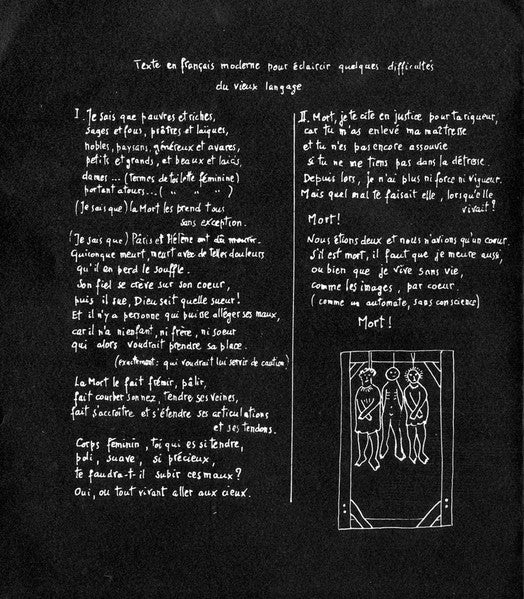 Texte en français moderne pour éclaircir quelques difficultés
du vieux langage
I. Je sais que pauvres et riches,
sages et fous, prêtres et laïques,
nobles, paysans, généreux et avares,
petits et grands, et beaux et laids,
dames... (Termes de toilette féminine)
portant atours...( " " " )
(Je sais que) la Mort les prend tous
sans exception.
(Je sais que) Pâris et Hélène ont dû mourir.
Quiconque meurt, meurt avec de telles douleurs
qu'il en perd le souffle.
Son fiel se crève sur son coeur,
puis il sue, Dieu sait quelle sueur!
Et il n'y a personne qui puisse alléger ses maux,
car il n'a ni enfant, ni frère, ni soeur
qui alors voudrait prendre sa place.
(exactement: qui voudrait lui servir de caution)
La Mort le fait frémir, pâlir,
fait courber son nez, tendre ses veines,
fait s'accroître et s'étendre ses articulations
et ses tendons.
Corps féminin, toi qui es si tendre,
poli, suave, si précieux,
te faudra-t-il subir ces maux?
Oui, ou tout vivant aller aux cieux.
II. Mort, je te cite en justice pour ta rigueur,
car tu m'as enlevé ma maîtresse
et tu n'es pas encore assouvie
si tu ne me tiens pas dans la détresse.
Depuis lors, je n'ai plus ni force ni vigueur.
Mais quel mal te faisait elle, lorsqu'elle
vivait?
Mort!
Nous étions deux et nous n'avions qu'un coeur.
S'il est mort, il faut que je meure aussi,
ou bien que je vive sans vie,
comme les images, par coeur.
(comme un automate, sans conscience)
Mort!